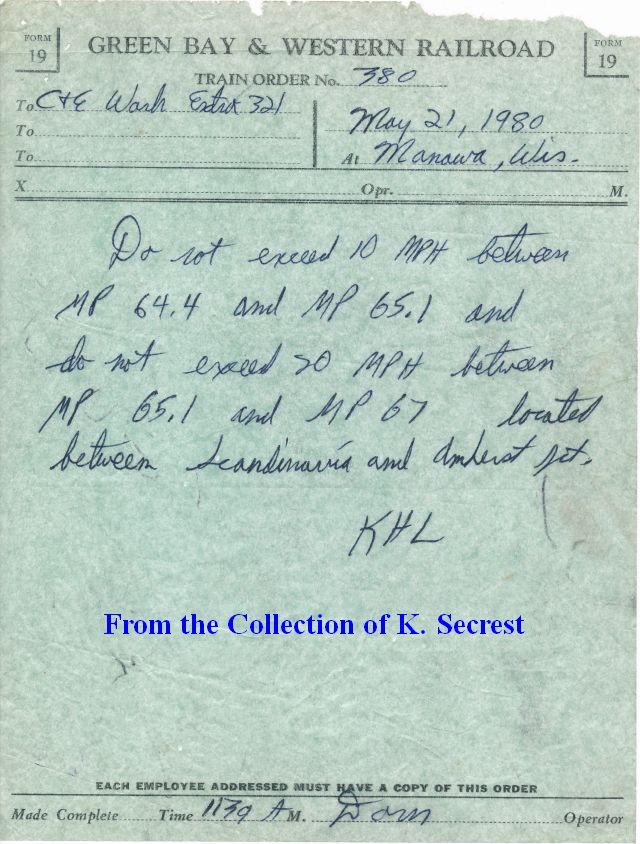 FORM 19
GREEN BAY & WESTERN RAILROAD
FORM 19
TRAIN ORDER No. 380
To C+E Work Extra 321
To
May 21, 1980
To
At Manawa, Wis.
X Opr. M.
Do not exceed 10 MPH between
MP 64.4 and MP 65.1 and
do not exceed 20 MPH between
MP 65.1 and MP 67 located
between Scandinavia and Amherst Jct.
KHL
From the Collection of K. Secrest
EACH EMPLOYEE ADDRESSED MUST HAVE A COPY OF THIS ORDER
Made Complete Time 1139 A M. Operator